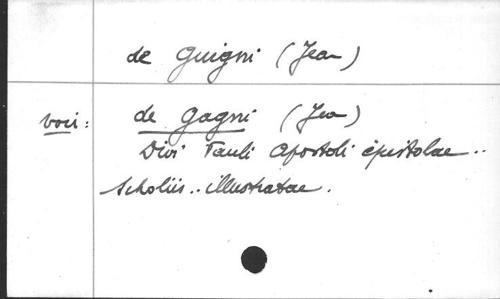 de Guigni (Jean)
voir: de Gagni (Jean)
Divi Pauli Apostoli epistolae..
Scholiis.. illustratae.